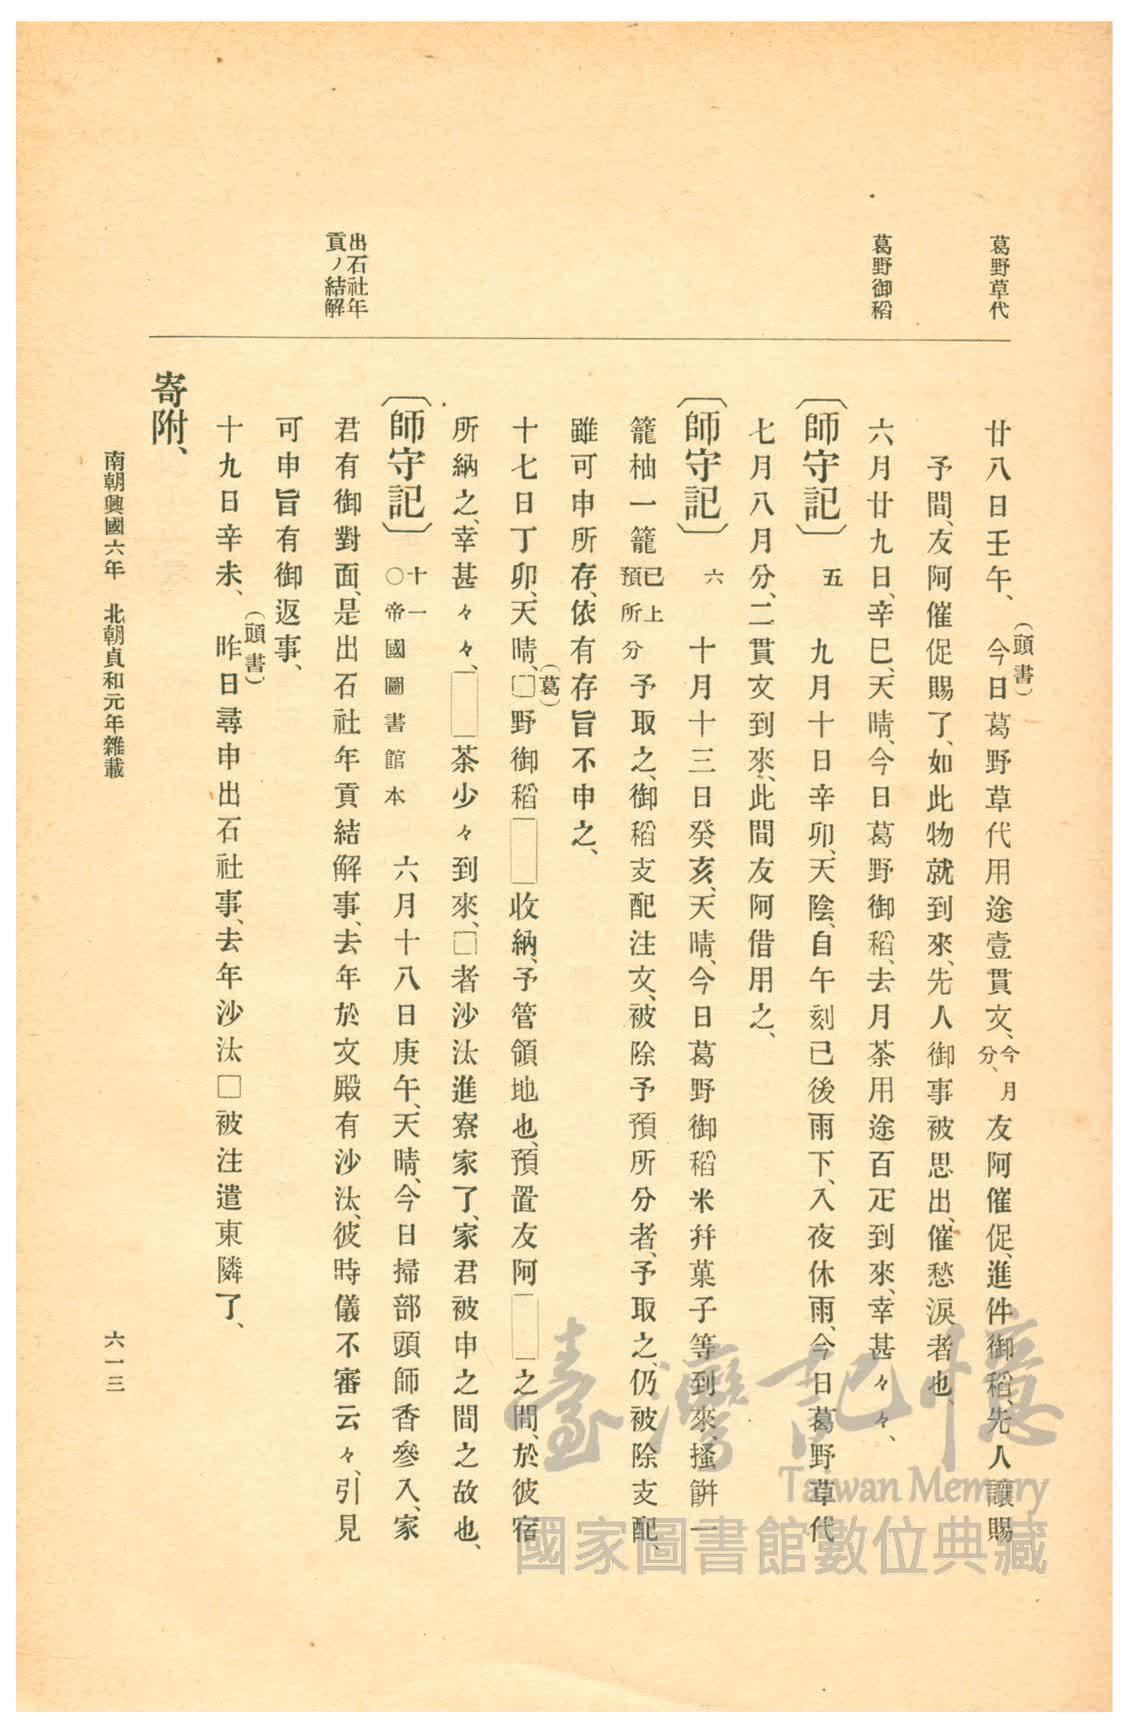 葛野草代
葛野御稻
出石社年
貢ノ結解
廿八日壬午、(頭書)今日葛野草代用途壹貫文、今月分、友阿催促、進件御稻、先人讓賜
予間、友阿催促賜了、如此物就到來、先人御事被思出、催愁淚者也、
六月廿九日、辛巳、天晴、今日葛野御稻、去月茶用途百疋到來、幸甚々々、
〔師守記〕五 九月十日辛卯、天陰、自午刻已後雨下、入夜休雨、今日葛野草代
七月八月分、二貫文到來、此間友阿借用之、
〔師守記〕六 十月十三日癸亥、天晴、今日葛野御稻米幷菓子等到來、搔餠一
籠柚一籠已上預所分予取之、御稻支配注文、被除予預所分者、予取之、仍被除支配、
雖可申所存、依有存旨不申之、
十七日丁卯、天晴、□(葛)野御稻□收納、予管領地也、預置友阿□之間、於彼宿
所納之、幸甚々々、□茶少々到來、□者沙汰進寮家了、家君被申之間之故也、
〔師守記〕十一○帝國圖書館本 六月十八日庚午、天晴、今日掃部頭師香參入、家
君有御對面、是出石社年貢結解事、去年於文殿有沙汰、彼時儀不審云々、引見
可申旨有御返事、
十九日辛未、(頭書)昨日尋申出石社事、去年沙汰□被注遣東隣了、
寄附、
南朝興國六年 北朝貞和元年雜載
六一三
臺灣記憶
Taiwan Memory
國家圖書館數位典藏